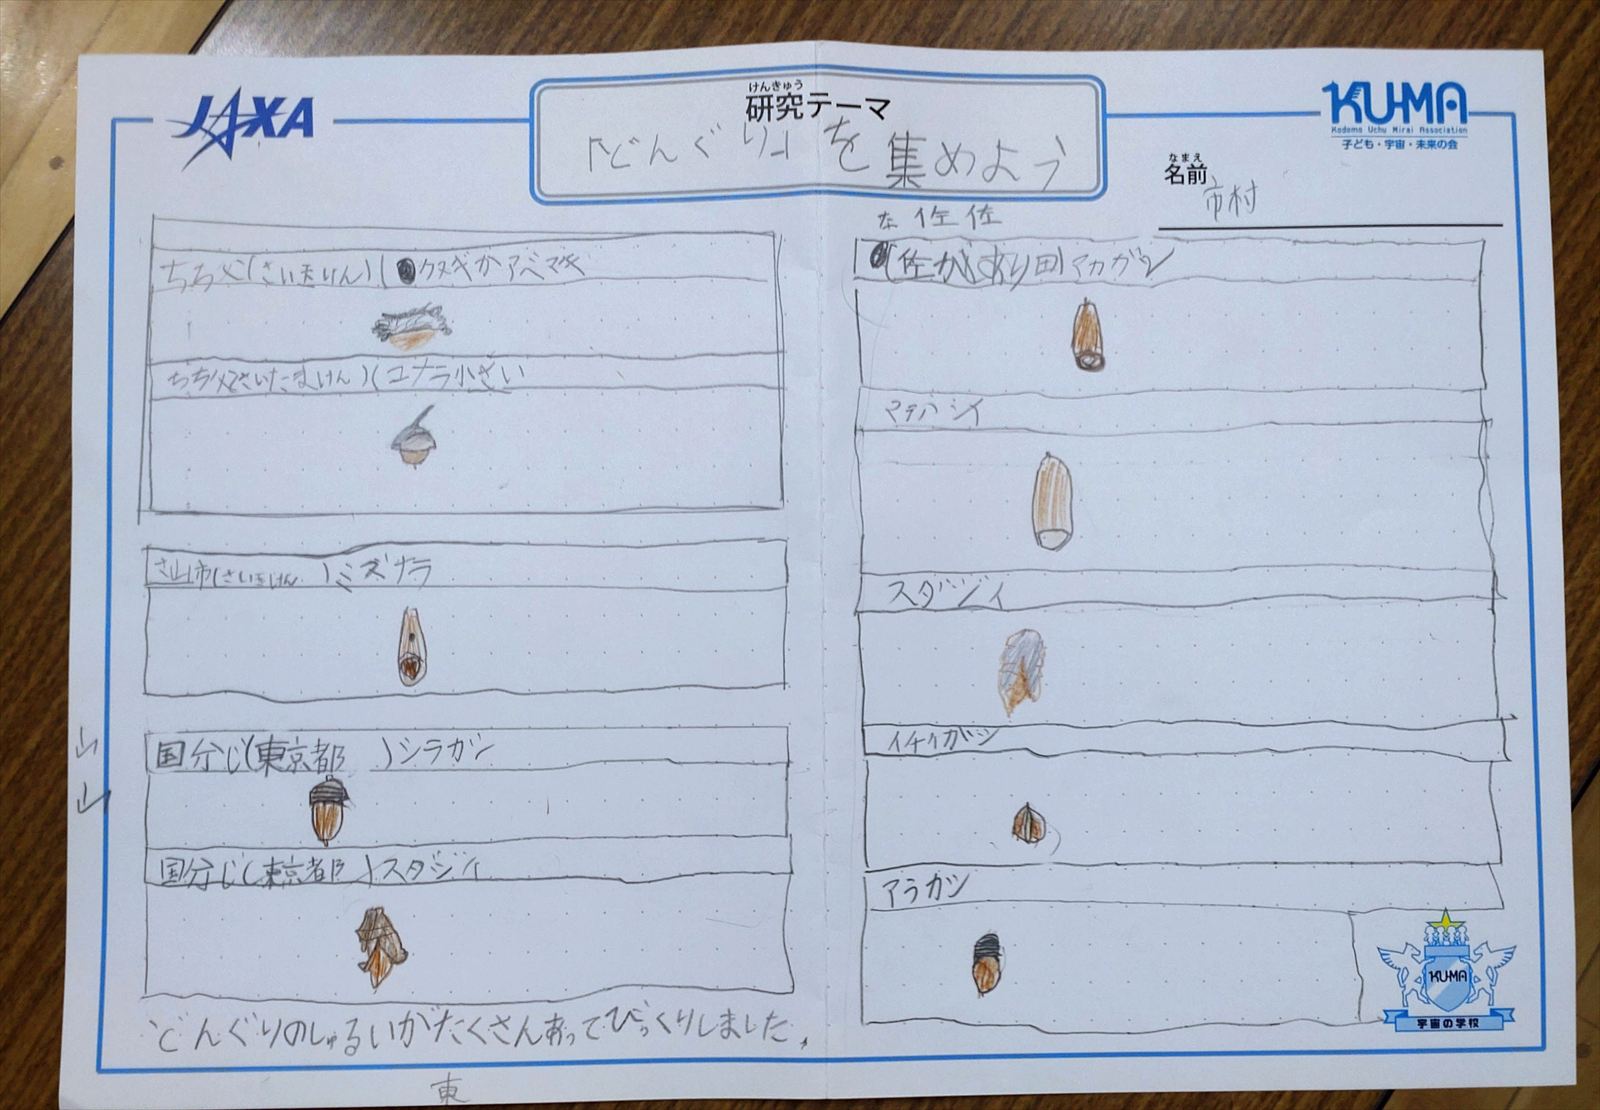 JAXA
けんきゅう
研究テーマ
「どんぐり」を集めよう
KU-MA
Kodomo Uchu Mirai Association
子ども・宇宙・未来の会
なまえ
名前
市村
ちち父(さいまけん)(クヌギかアベマキ
ちち父(さいたまけん)(コナラ小さい
さ山市(さいまけん)ミズナラ
山
山
国分じ(東京都)シラガシ
国分じ(東京都)スタジイ
どんぐりのしゅるいがたくさんあってびっくりしました。
東
な 佐 佐
アカガシ
マテバシイ
スダジイ
イチイガシ
アラカシ
KU-MA
宇宙の学校